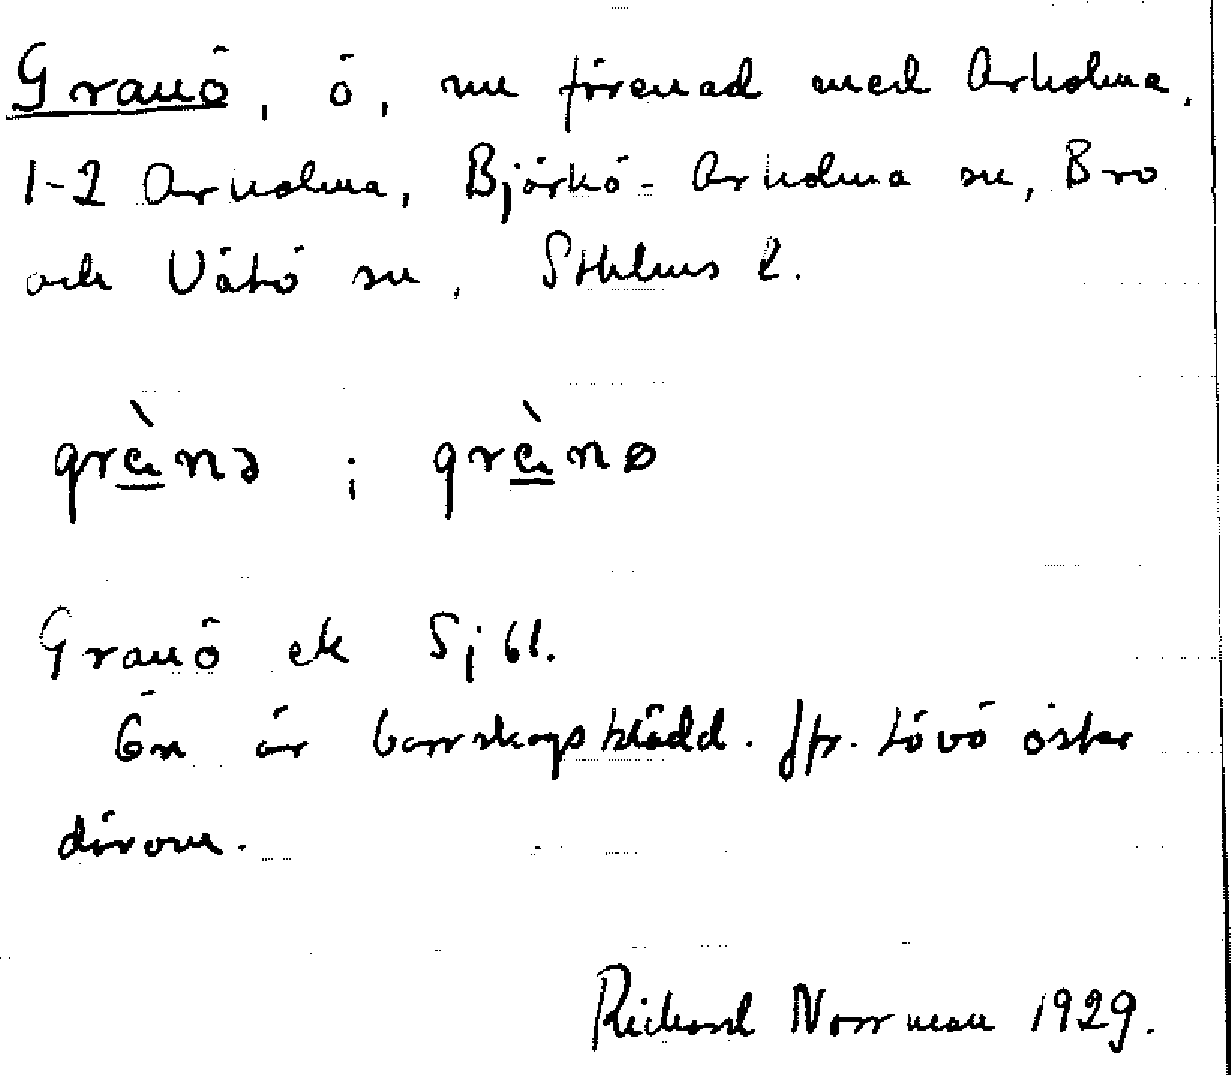 Granö, ö, nu förenad med Arholma.
1-2 Arholma, Björkö-Arholma sn, Bro
och Vätö sn, Sthlms l.
grɑ̀nə ; grɑ̀nø
Granö ek Sjbl.
Ön är barrskogsklädd. Jfr. Lövö öster
därom.
Richard Norrman 1929.